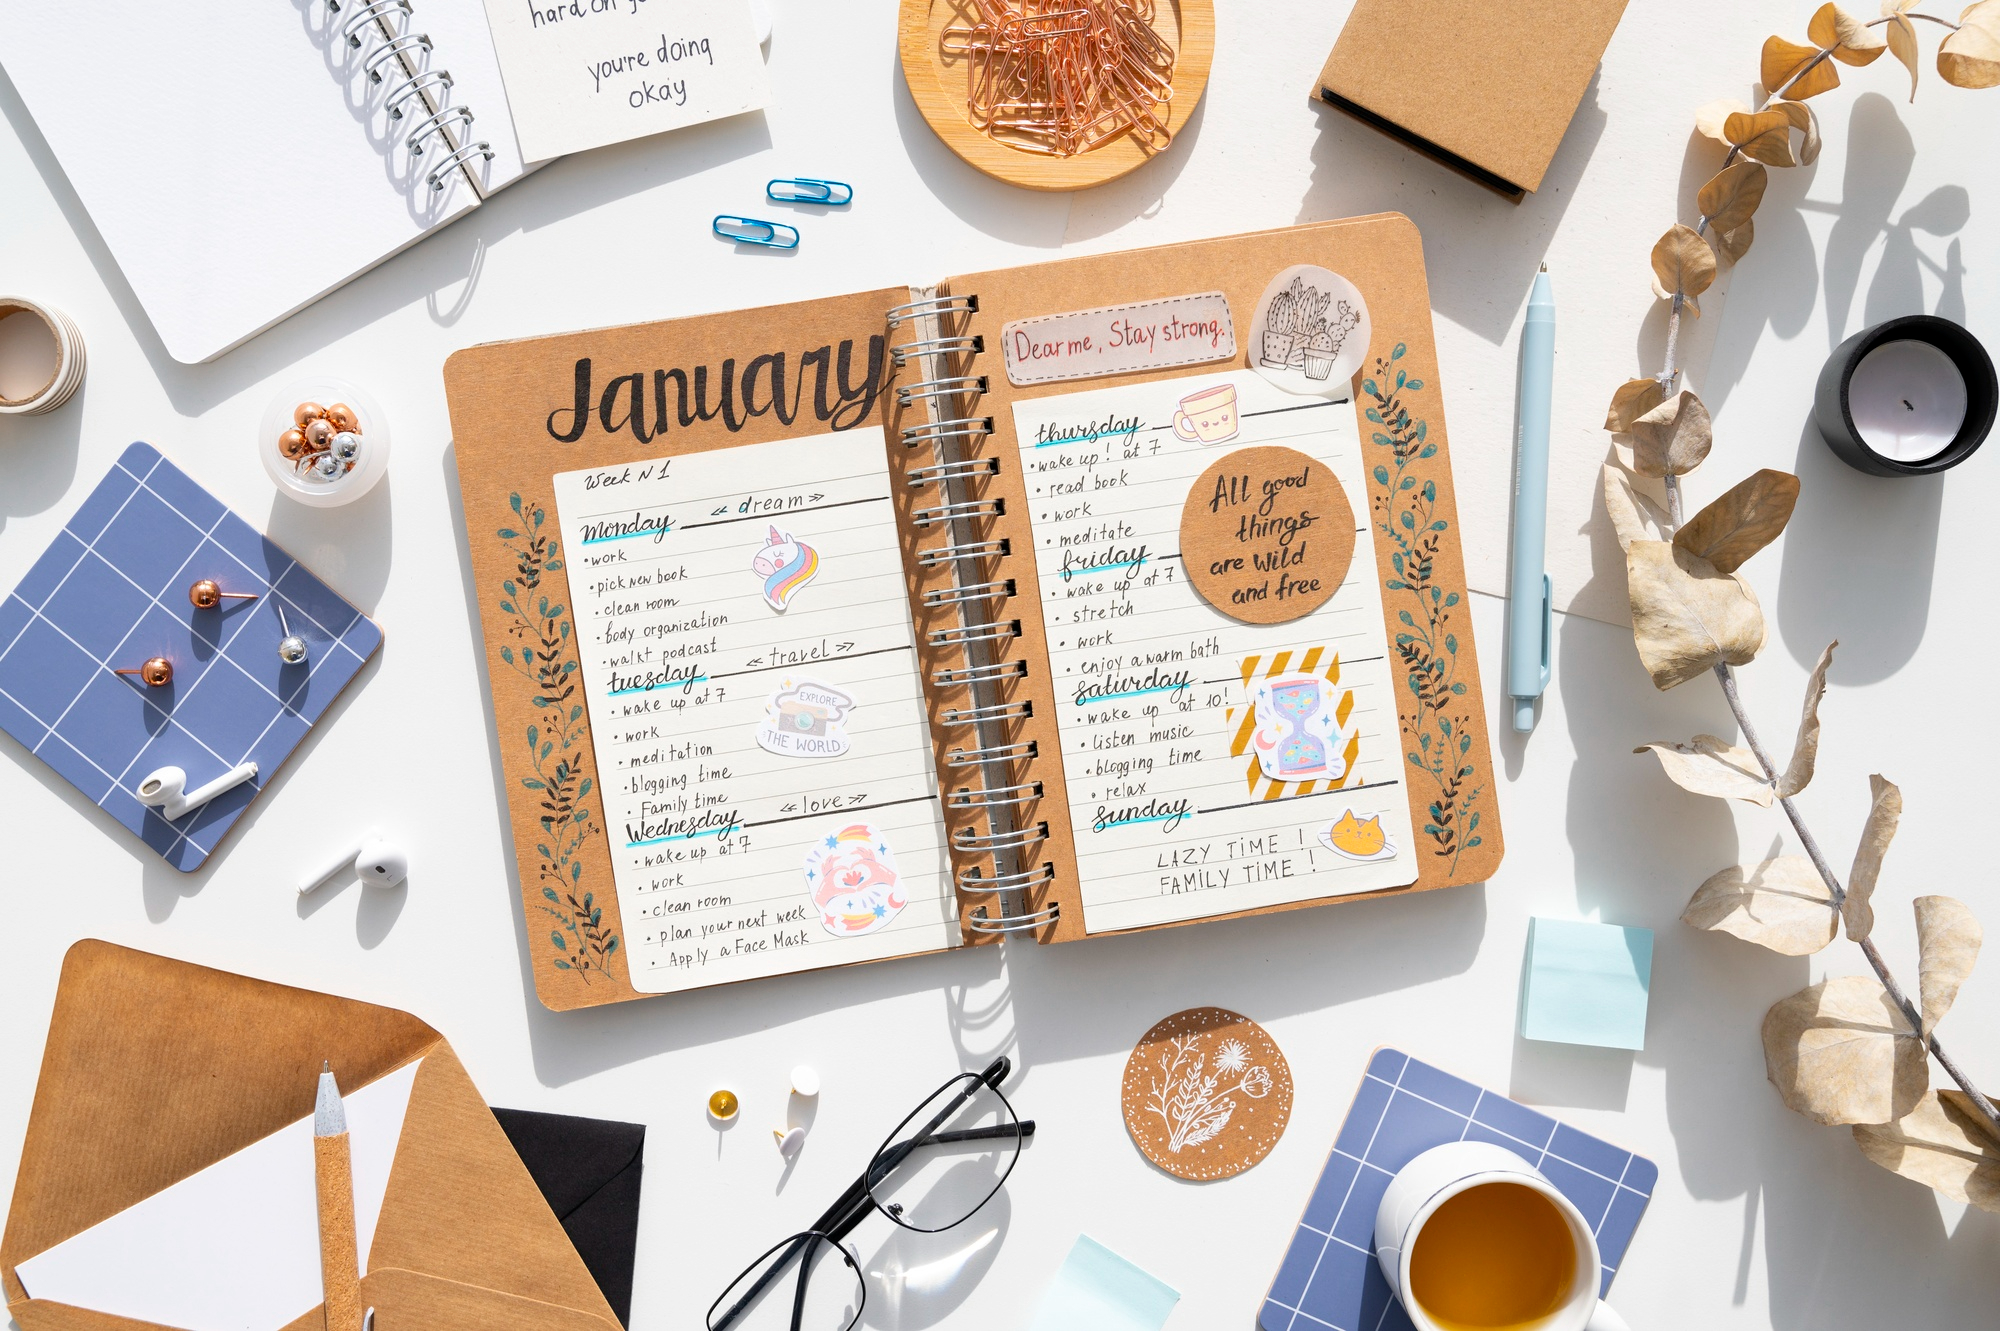 hard on
you're doing
okay
January
Week N 1
« dream »
monday
•work
•pick new book
•clean room
•body organization
•walkt podcast
« travel »
tuesday
•wake up at 7
•work
•meditation
•blogging time
•Family time
« love »
Wednesday
•wake up at 7
•work
•clean room
•plan your next week
•Apply a Face Mask
EXPLORE
THE WORLD
Dear me, Stay strong.
thursday
•wake up! at 7
•read book
•work
•meditate
friday
•wake up at 7
•stretch
•work
•enjoy a warm bath
saturday
•wake up at 10!
•listen music
•blogging time
•relax
sunday
LAZY TiME !
FAMiLY TiME !
All good
things
are wild
and free